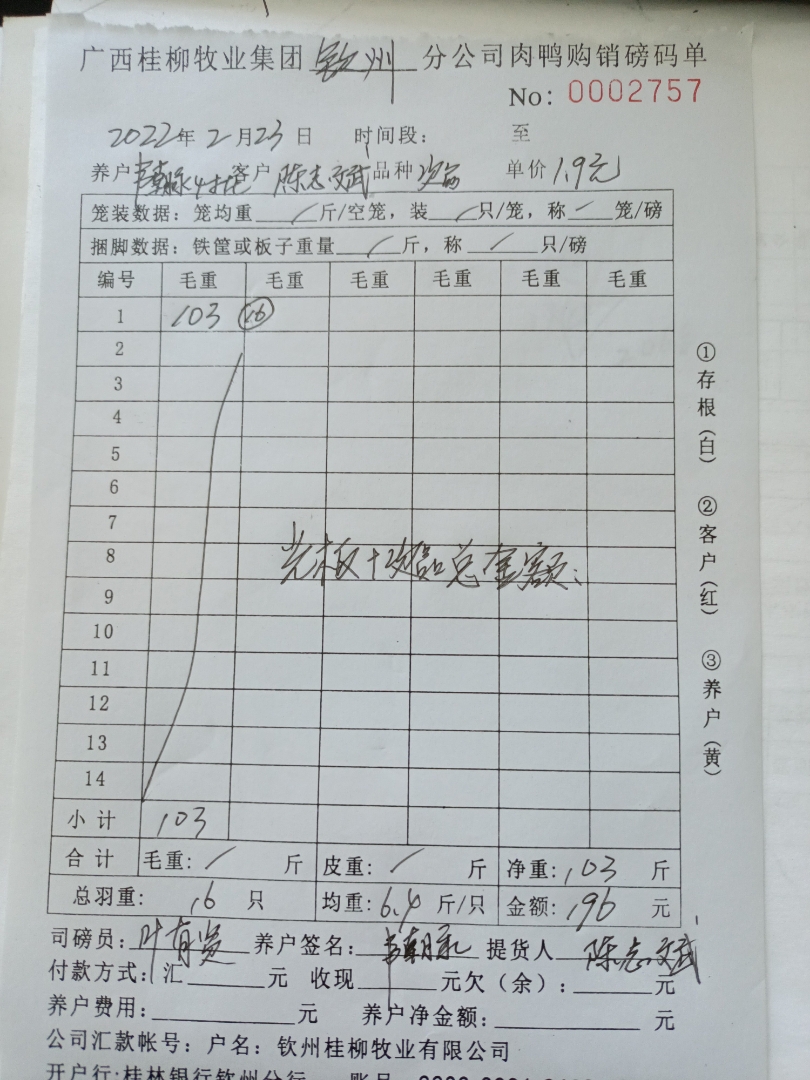 广西桂柳牧业集团 钦州 分公司肉鸭购销磅码单
No: 0002757
2022年2月23日 时间段: 至
养户 客户 陈志斌 品种 次品 单价 1.9元
笼装数据: 笼均重 / 斤/空笼, 装 / 只/笼, 称 / 笼/磅
捆脚数据: 铁筐或板子重量 / 斤, 称 / 只/磅
编号 毛重 毛重 毛重 毛重 毛重 毛重
1 103 16
2
3
4
5
6
7
8
光板+次品总金额:
9
10
11
12
13
14
小计 103
合计 毛重: / 斤 皮重: / 斤 净重: 103 斤
总羽重: 16 只 均重: 6.4 斤/只 金额: 196 元
司磅员: 叶有贤 养户签名: 提货人 陈志斌
付款方式: 汇 元 收现 元欠(余): 元
养户费用: 元 养户净金额: 元
公司汇款帐号: 户名: 钦州桂柳牧业有限公司
开户行: 桂林银行钦州分行
①存根(白) ②客户(红) ③养户(黄)